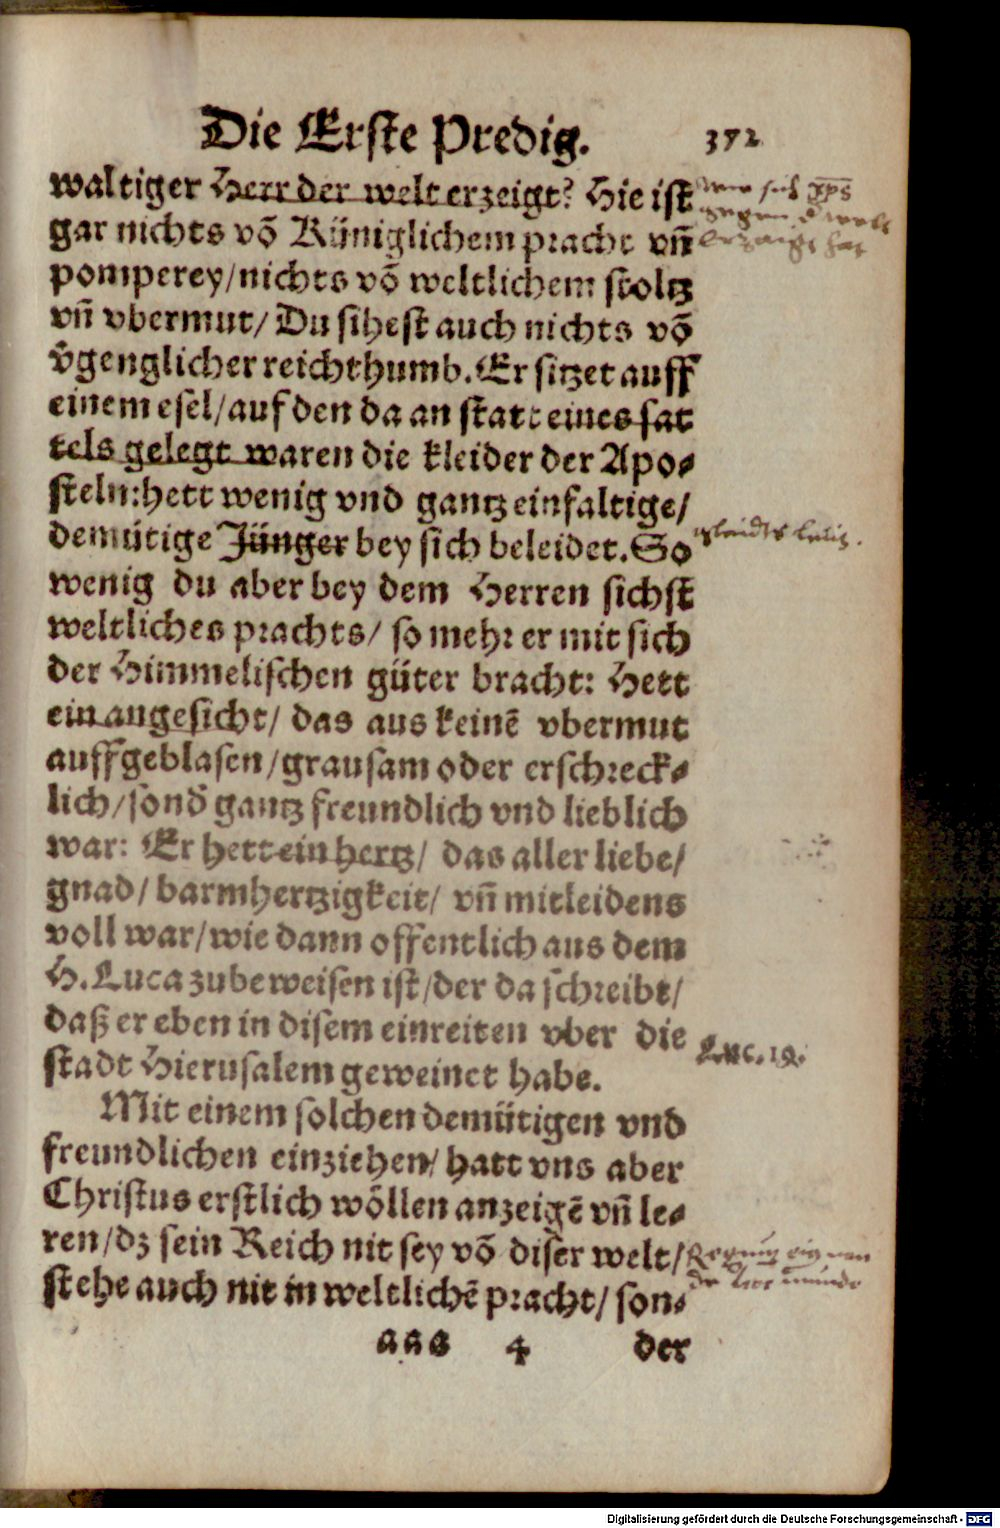 Die Erste Predig. 372
waltiger Herr der welt erzeigt? Hie ist
gar nichts võ Küniglichem pracht vñ
pomperey/nichts võ weltlichem stoltz
vñ vbermut/ Du sihest auch nichts võ
v̄genglicher reichthumb. Er sitzet auff
einem esel/auf den da an statt eines sat
tels gelegt waren die kleider der Apo⸗
steln:hett wenig vnd gantz einfaltige/
demütige Jünger bey sich beleidet. So
wenig du aber bey dem Herren sichst
weltliches prachts/ so mehr er mit sich
der Himmelischen güter bracht: Hett
ein angesicht/ das aus keinẽ vbermut
auffgeblasen/grausam oder erschreck⸗
lich/sond̄ gantz freundlich vnd lieblich
war: Er hett ein hertz/ das aller liebe/
gnad/ barmhertzigkeit/ vñ mitleidens
voll war/wie dann offentlich aus dem
H. Luca zubeweisen ist/der da schreibt/
daß er eben in disem einreiten vber die
stadt Hierusalem geweinet habe.
Luc. 19.
Mit einem solchen demütigen vnd
freundlichen einziehen/ hatt vns aber
Christus erstlich wöllen anzeigẽ vñ le⸗
ren/dz sein Reich nit sey võ diser welt/
stehe auch nit in weltlichẽ pracht/ son⸗
aaa 4 der
Digitalisierung gefördert durch die Deutsche Forschungsgemeinschaft - DFG